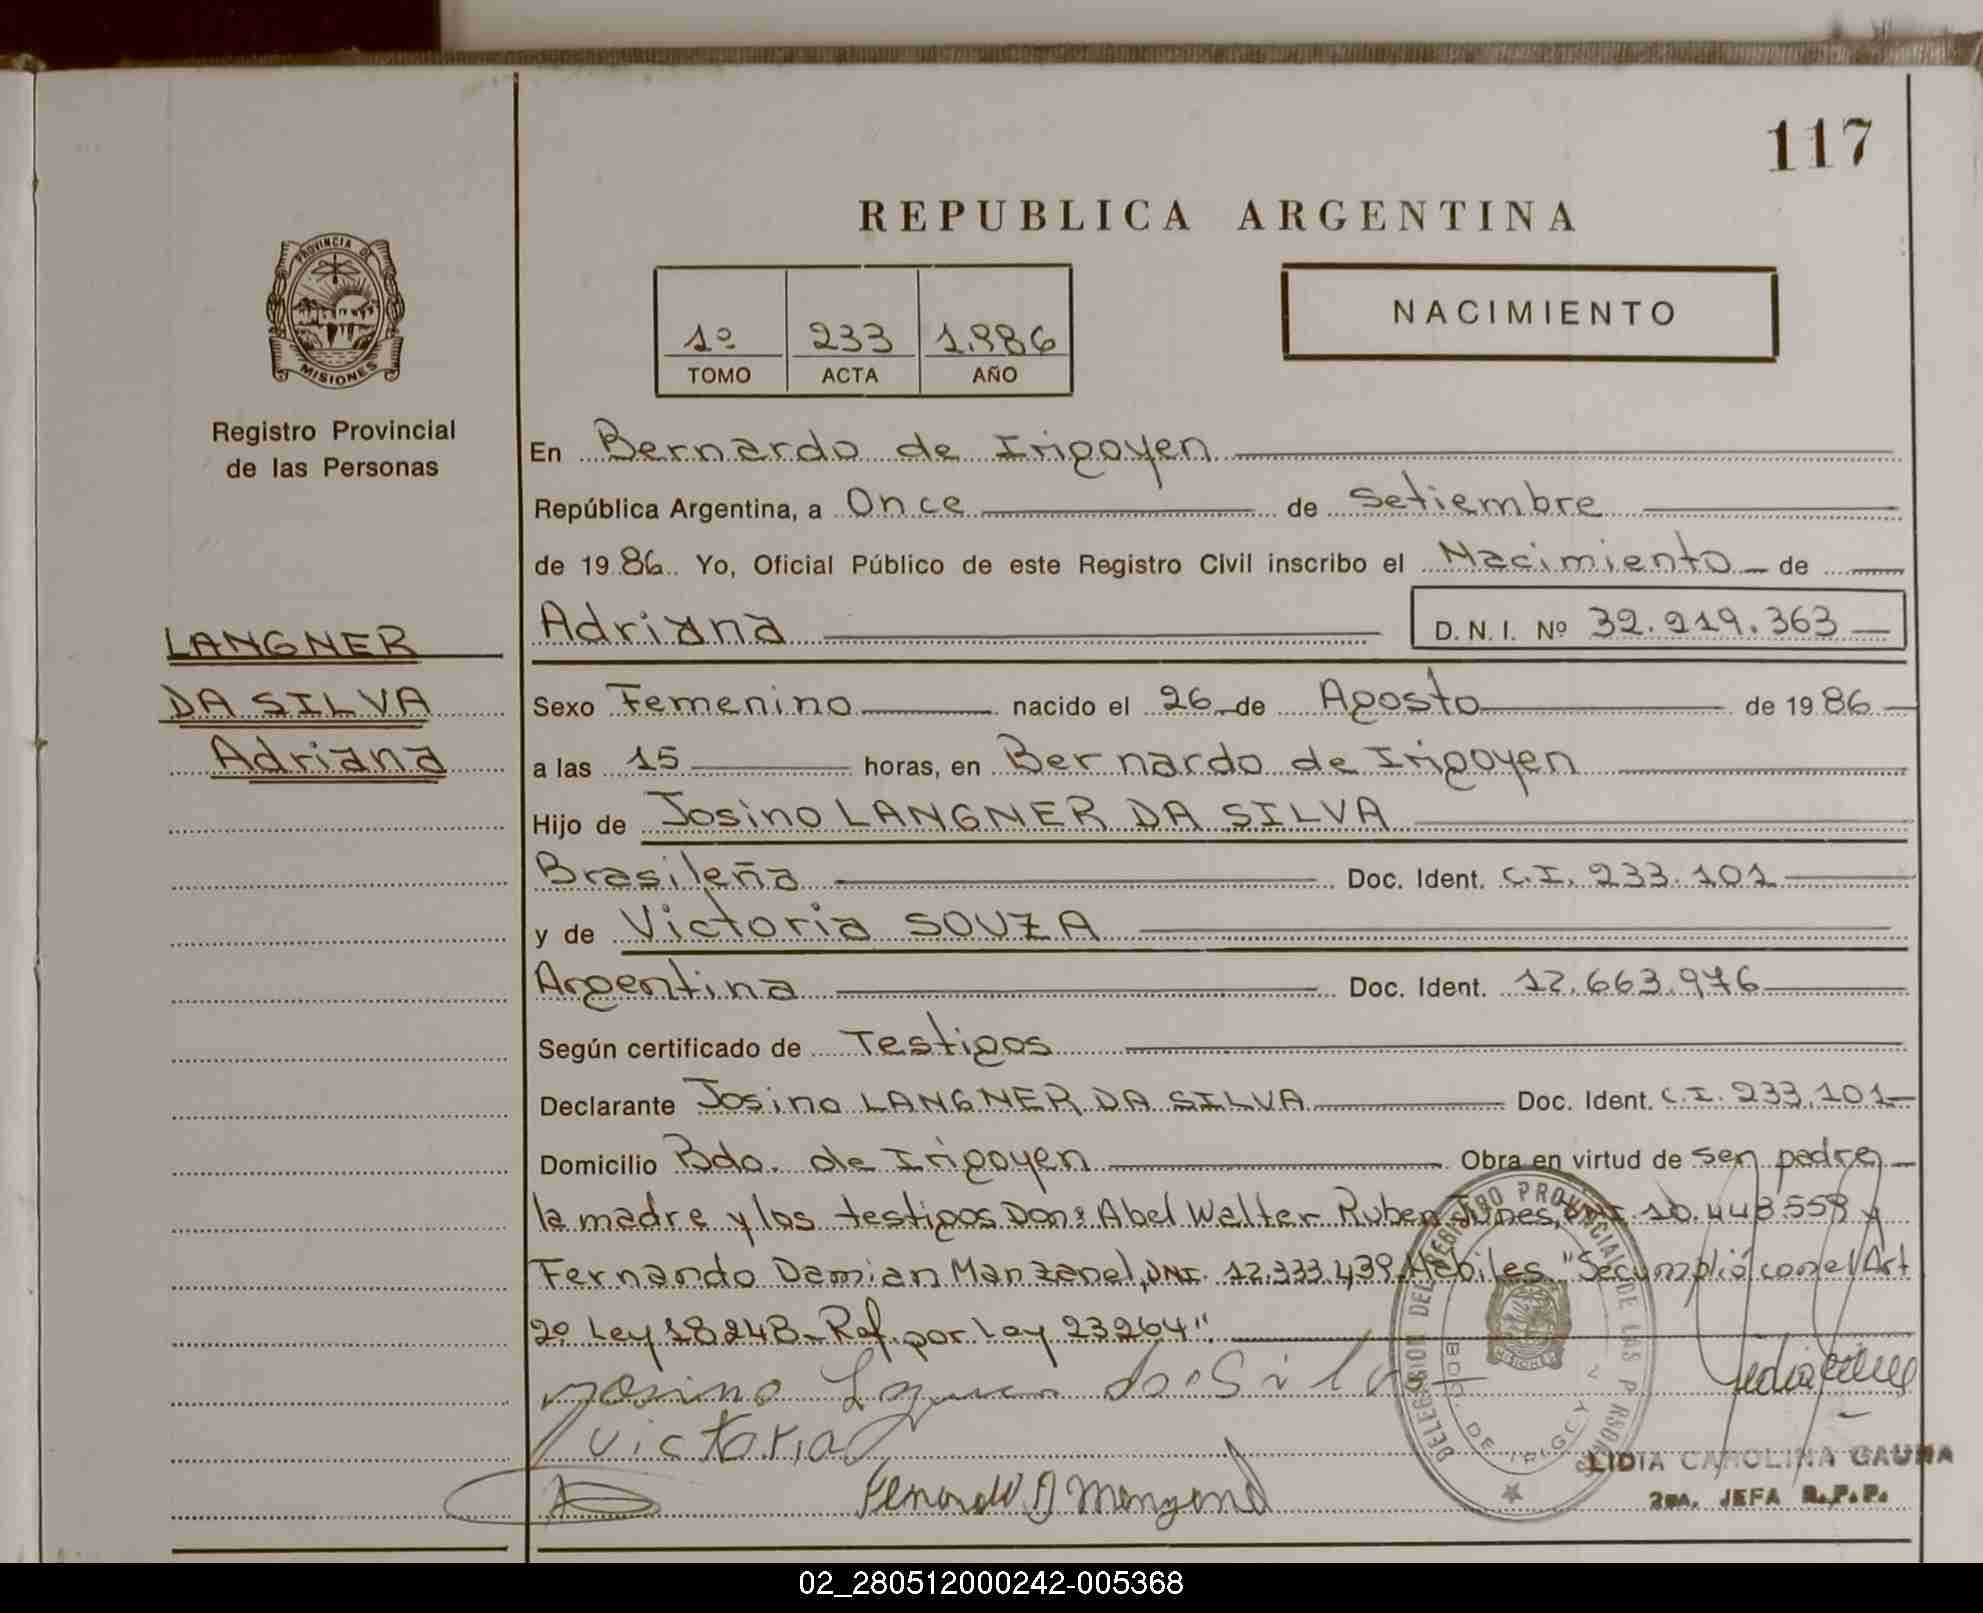 117
REPUBLICA ARGENTINA
PROVINCIA DE
MISIONES
1º 233 1.986
TOMO ACTA AÑO
NACIMIENTO
Registro Provincial
de las Personas
LANGNER
DA SILVA
Adriana
En Bernardo de Irigoyen
República Argentina, a Once de Setiembre
de 19 86. Yo, Oficial Público de este Registro Civil inscribo el Nacimiento de
Adriana D. N. I. Nº 32.219.363
Sexo Femenino nacido el 26 de Agosto de 19 86
a las 15 horas, en Bernardo de Irigoyen
Hijo de Josino LANGNER DA SILVA
Brasileña Doc. Ident. C.I. 233.101
y de Victoria SOUZA
Argentina Doc. Ident. 12.663.976
Según certificado de Testigos
Declarante Josino LANGNER DA SILVA Doc. Ident. C.I. 233.101
Domicilio Bdo. de Irigoyen Obra en virtud de ser padre
la madre y los testigos Don: Abel Walter Ruben DNI. 10.448.559 y
Fernando Damian Manzanel, DNI. 12.333.439 Habiles "Se cumplió con el Art
2º Ley 18248 Ref. por Ley 23264".
Josino da Silva
Victoria
DELEGACION DEL REGISTRO PROVINCIAL DE LAS PERSONAS
BDO. DE IRIGOYEN
MISIONES
LIDIA CAROLINA GAUNA
2DA. JEFA R.P.P.
02_280512000242-005368